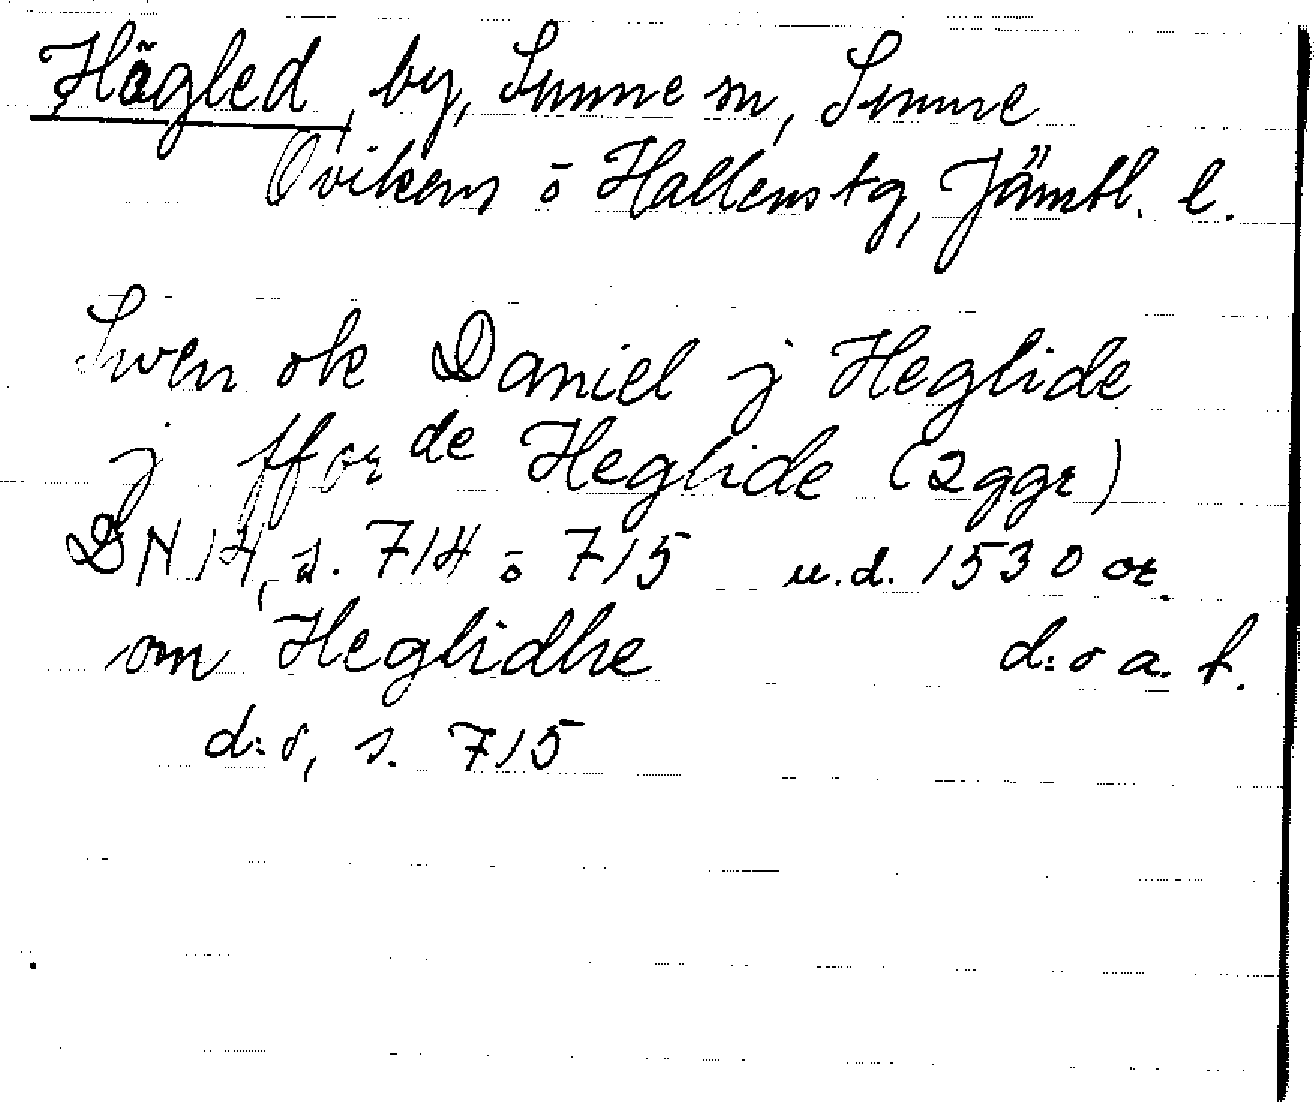 Högled, by, Sunne sn, Sunne
Oviken o Hallens tg, Jämtl. l.
Swen ok Daniel j Heglide
j ffor de Heglide (2 ggr)
DN 14, s. 714 o 715 u.d. 1530 or.
om Heglidhe d:o a. h.
d:o, s. 715